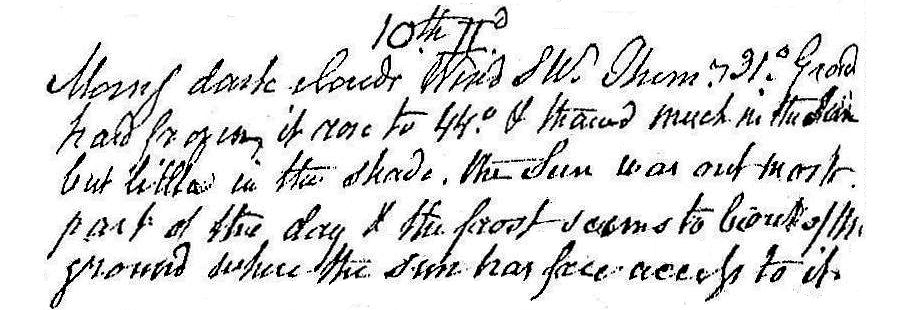 10th
Morng dark clouds Wind SW. Therm. 31.° Ground
hard frozen, it rose to 44.° & thawed much in the Sun
but little in the shade. the Sun was out most
part of the day & the frost seems to be out of the
ground where the sun has free access to it